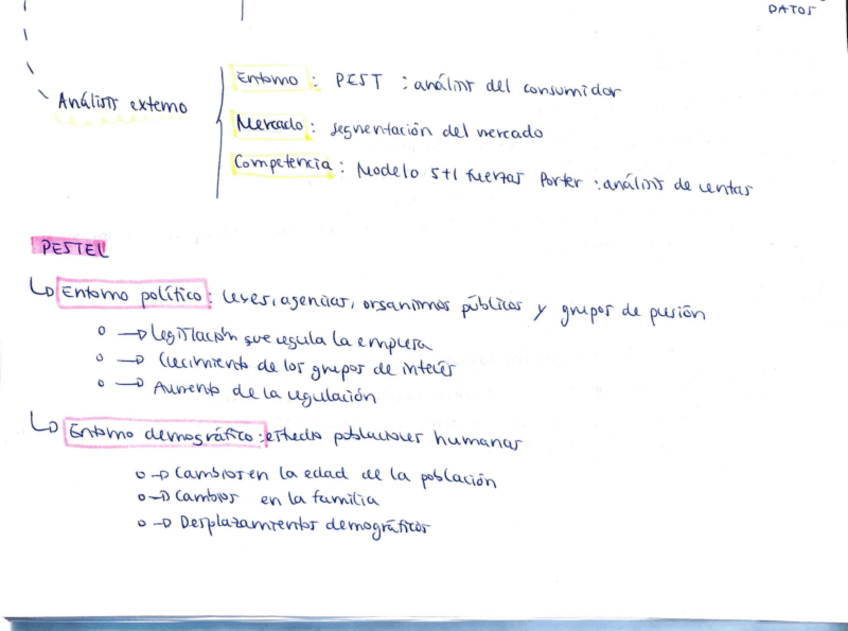 DATOS
Análisis externo
Entorno : PEST : análisis del consumidor
Mercado : segmentación del mercado
Competencia : Modelo 5+1 fuerzas Porter : análisis de ventas
PESTEL
Entorno político : leyes, agencias, organismos públicos y grupos de presión
Legislación que regula la empresa
Crecimiento de los grupos de interés
Aumento de la regulación
Entorno demográfico : estudio poblaciones humanas
Cambios en la edad de la población
Cambios en la familia
Desplazamientos demográficos